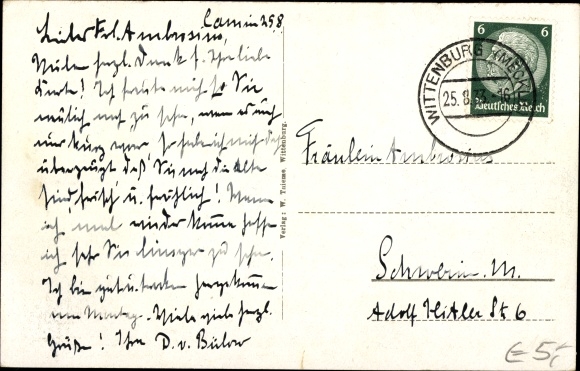 Camin 25.8.
Liebes Frl. Ambrosius,
Vielen herzl. Dank f. Ihre liebe
Karte! Ich freute mich so Sie
neulich mal zu sehn, wenn es auch
nur kurz war, so habe ich mich doch
überzeugt daß Sie noch die Alte
sind, frisch u. fröhlich! Wenn
ich mal wieder komme hoffe
ich sehr Sie länger zu sehn.
Ich bin gut
am Montag. Viele viele herzl.
Grüße! Ihre D. v. Bülow
Verlag: W. Wittenburg.
6 6
Deutsches Reich
WITTENBURG (MECKL)
25.8.33
Fräulein Ambrosius
Schwerin. M.
Adolf Hitler St 6
€ 5,-